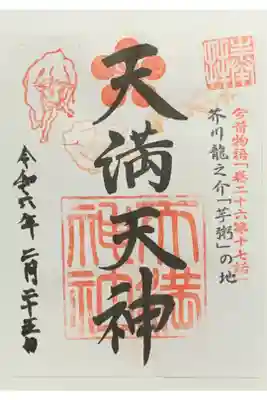 今昔物語「巻二十六第十七話」
芥川龍之介「芋粥」の地
天満天神
天満
神社
令和六年 二月二十五日